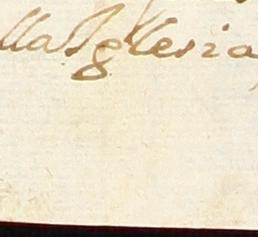 lla Iglesia